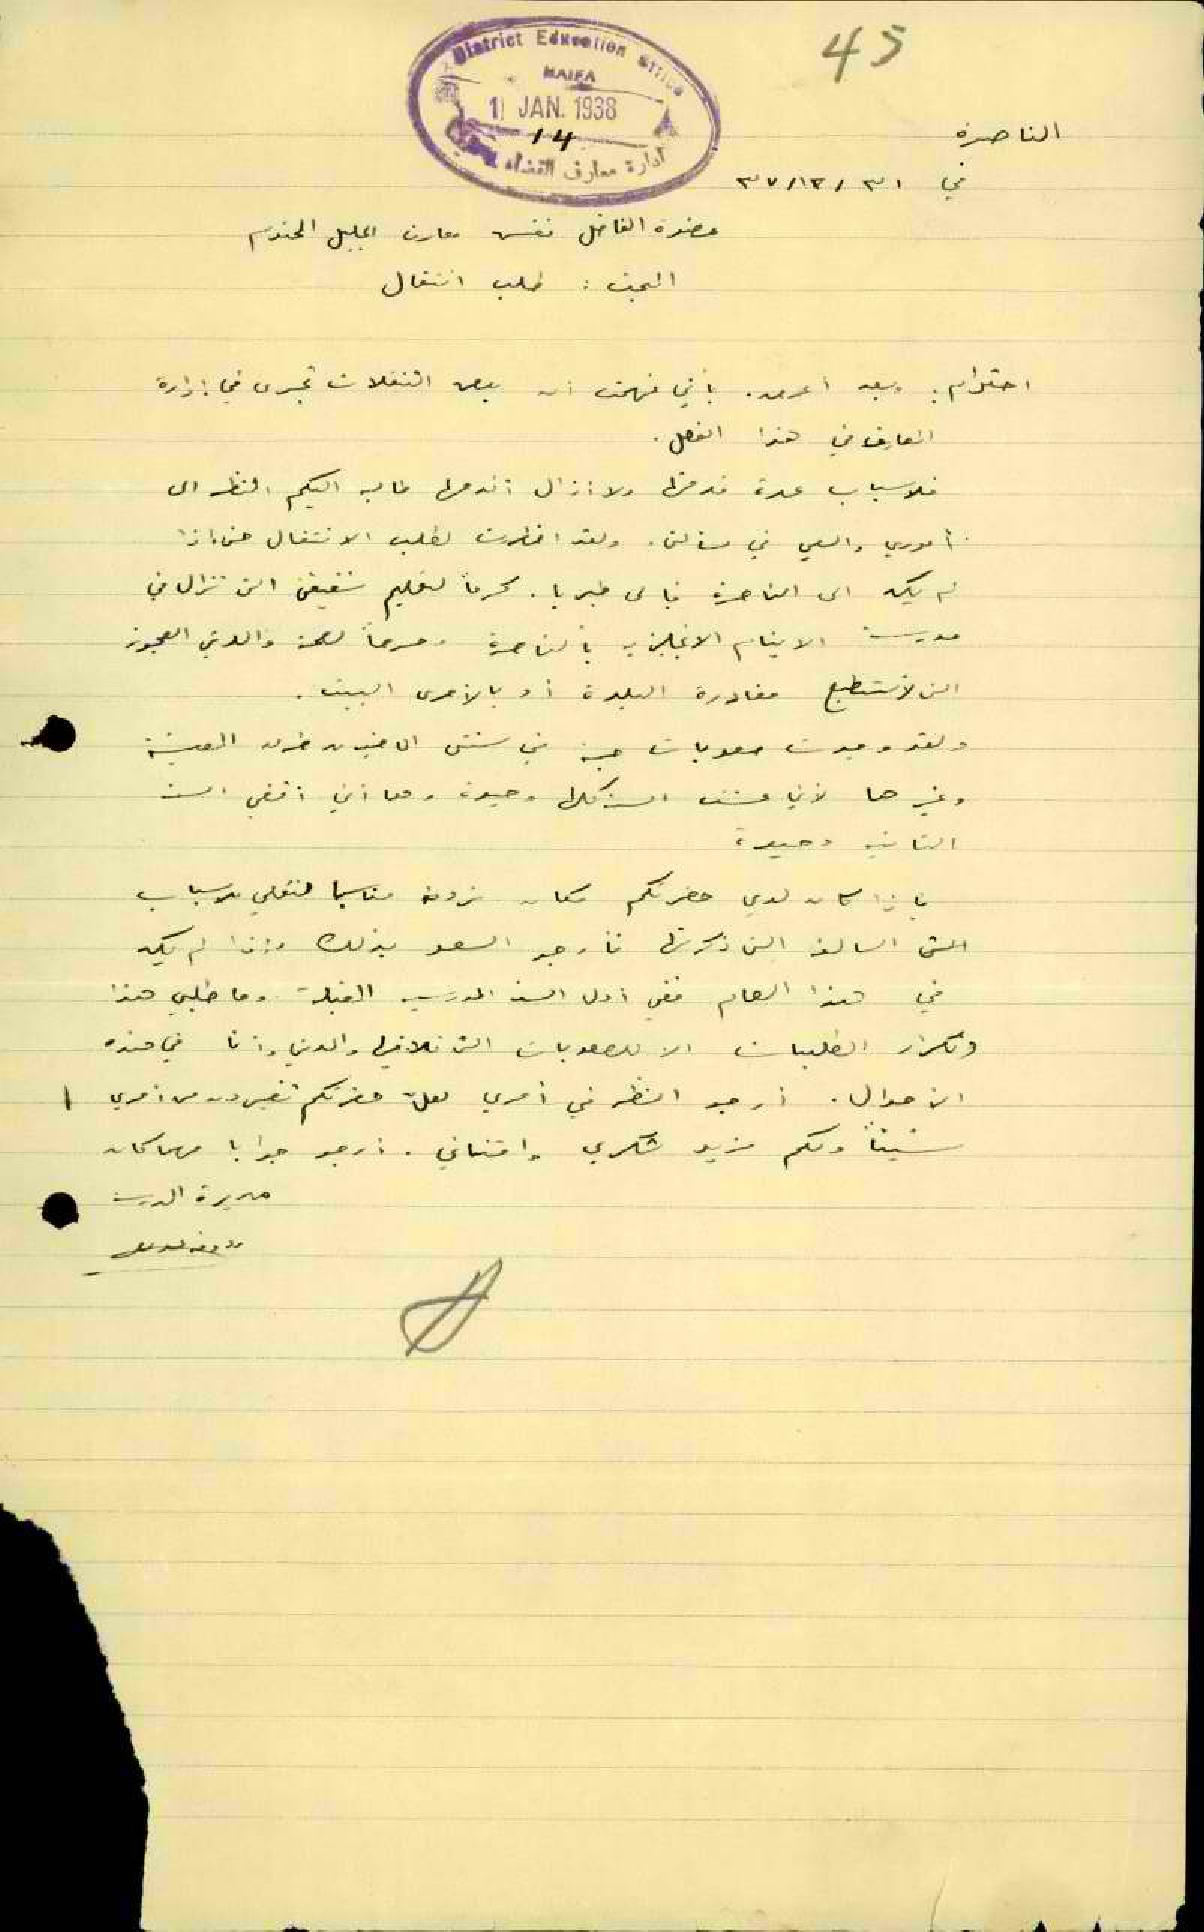 45
District Education Office
HAIFA
11 JAN. 1938
14
ادارة معارف القضاء
الناصرة
في ٣١ / ١٢ / ٣٧
حضرة الفاضل مفتش معارف الجليل المحترم
البحث : طلب انتقال
احترام، وبعد أعرض بأني فهمت ان بعض التنقلات تجري في إدارة
المعارف في هذا الفصل .
فلاسباب عدة قدمتها ولا أزال أقدمها طالبه اليكم النظر الى
أموري والسعي في مسألتي. ولقد اضطررت لطلب الانتقال حتى إذا
لم يكن الى الناصرة فإلى طبريا. لتعليم شقيقتي التي لا تزال في
مدرسة الايتام الانجليزيه بالناصرة وحرصاً لصحة والدتي العجوز
التي لا تستطيع مغادرة البلدة أو بالأحرى البيت .
ولقد وجدت صعوبات جمة في سنتي الماضية من المعيشة
وغيرها لأني عشت السنة كلها وحيدة وها أني أقضي السنة
الثانيه وحيدة
فإذا كان لدي حضرتكم مكان ترونه مناسبا لنقلي للاسباب
التي السالفة التي ذكرتها فأرجو السعي بذلك وإذا لم يكن
في هذا العام ففي أول السنة المدرسيه المقبلة وما طلبي هذا
وتكرار الطلبات الا للصعوبات التي تلاقيها والدتي وأنا في هذه
الأحوال. أرجو النظر في أمري لعل حضرتكم تغيرون من أمري
شيئاً ولكم مزيد شكري وامتناني . أرجو جوابا مهما كان
مديرة المدرسة